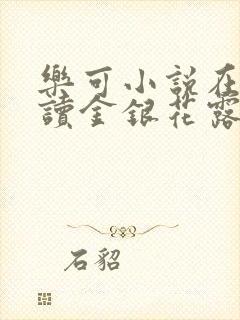 樂可小說在
讀金銀花露
石貂